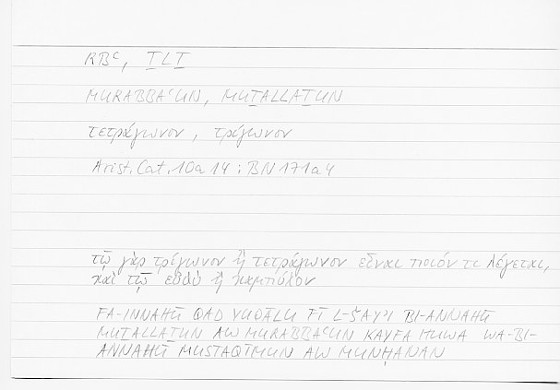 RBᶜ, T̲LT̲
MURABBAᶜUN, MUT̲ALLAT̲UN
τετράγωνον, τρίγωνον
Arist. Cat. 10a 14 ; BN 171a4
τῷ γὰρ τρίγωνον ἢ τετράγωνον εἶναι ποιόν τι λέγεται,
καὶ τῷ εὐθὺ ἢ καμπύλον
FA-INNAHŪ QAD YUQĀLU FĪ L-ŠAYʾI BI-ANNAHŪ
MUT̲ALLAT̲UN AW MURABBAᶜUN KAYFA HUWA WA-BI-
ANNAHŪ MUSTAQĪMUN AW MUNḤANAN